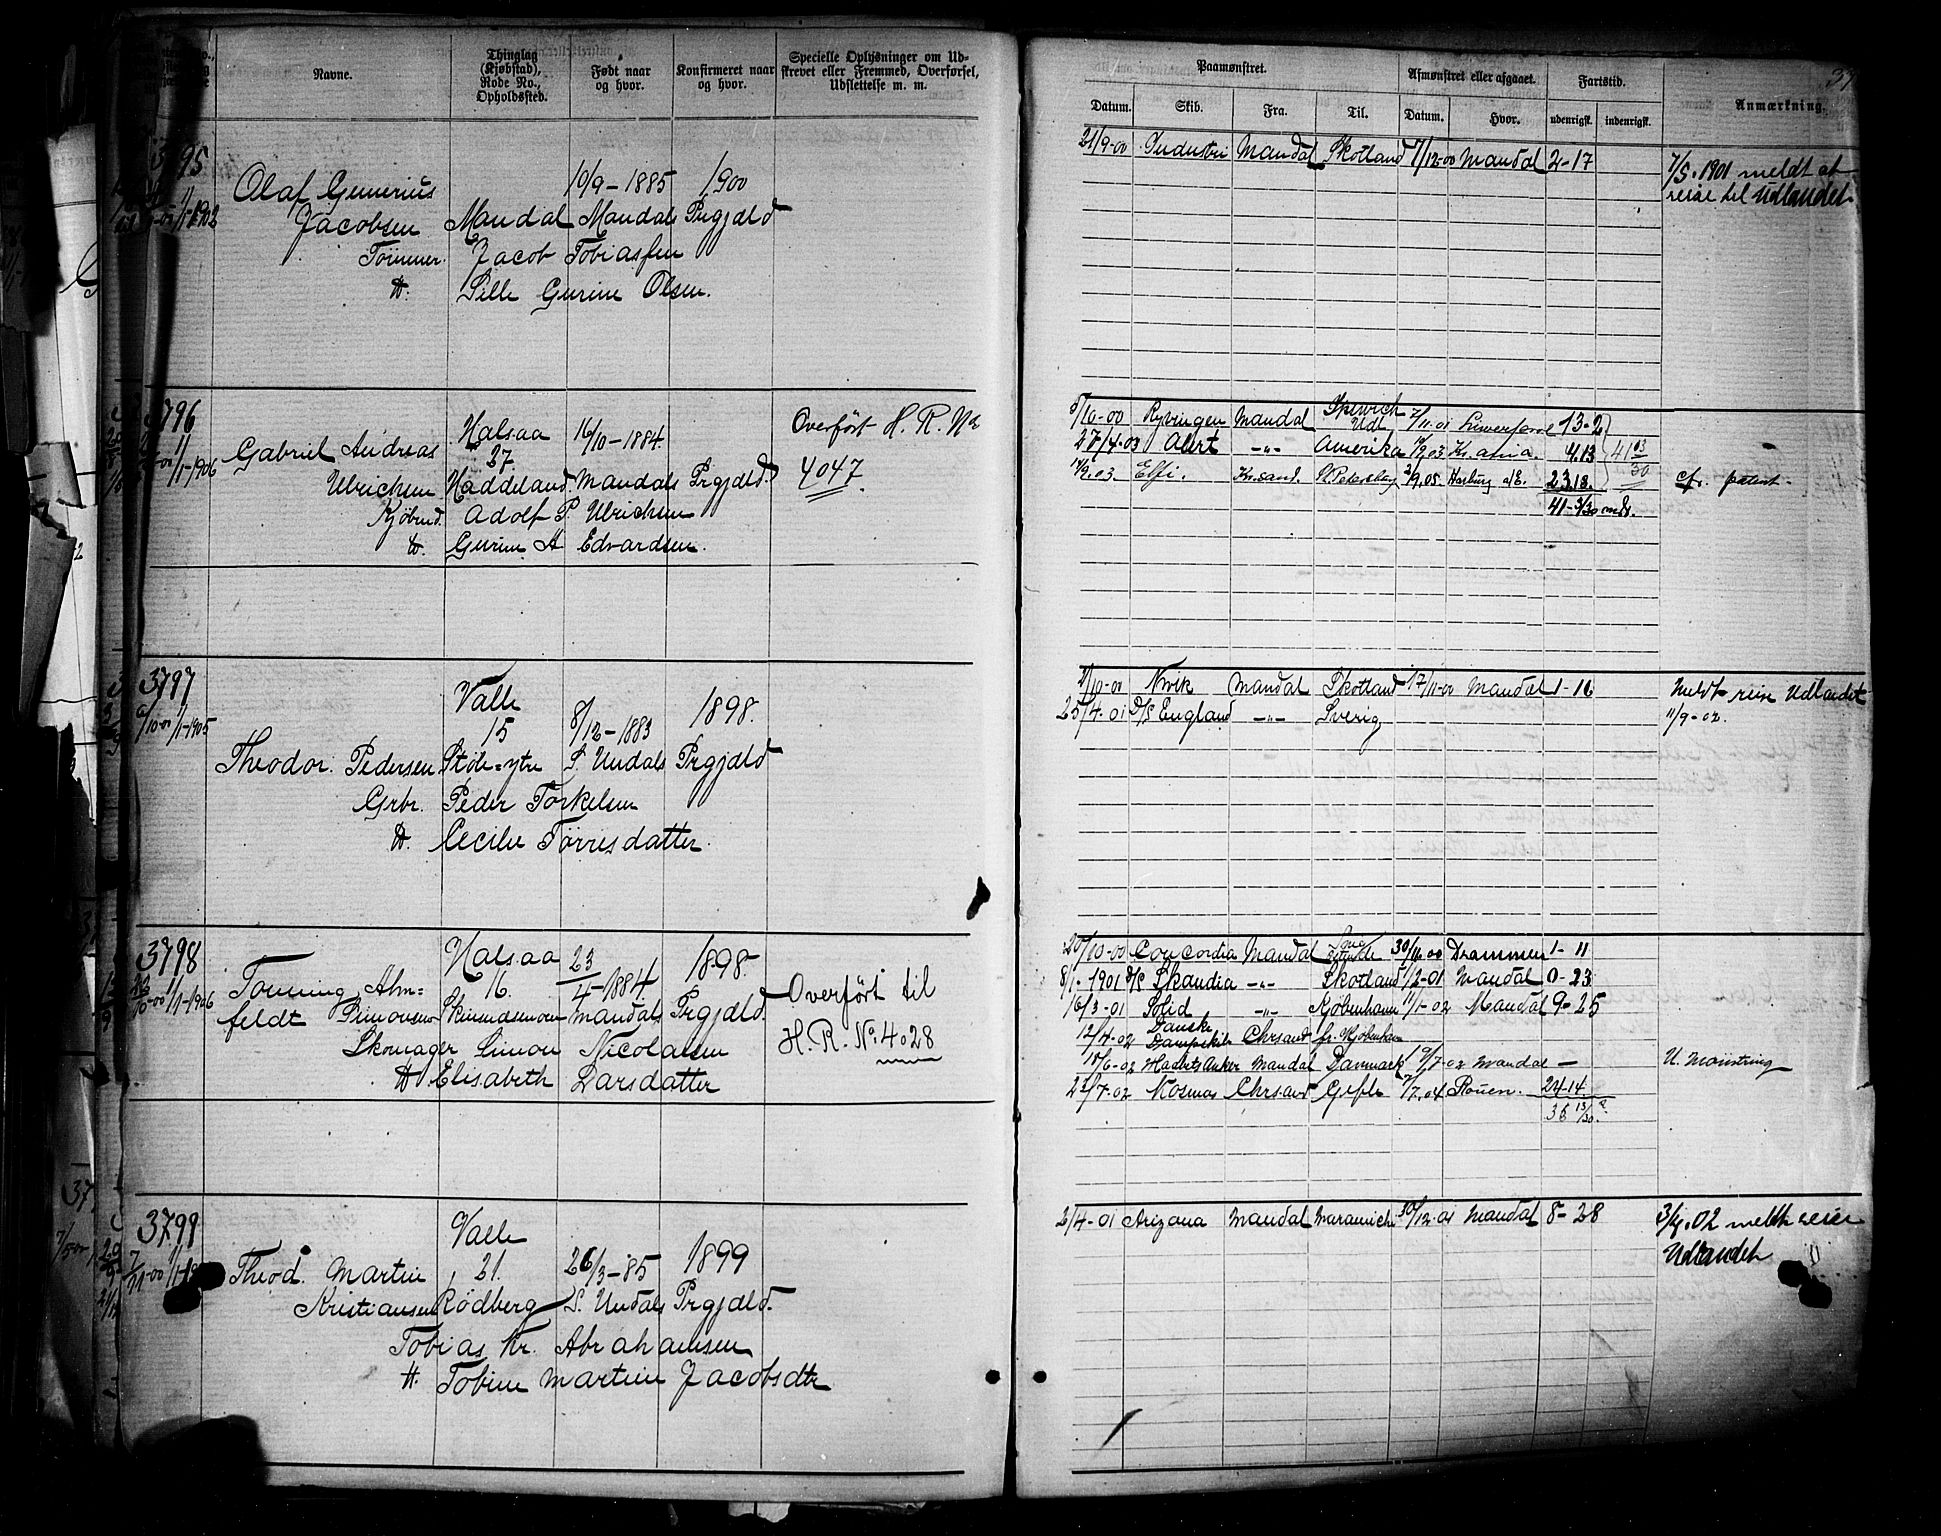 Navne.
Thinglag (Kjøbstad), Rode No., Opholdssted.
Født naar og hvor.
Konfirmeret naar og hvor.
Specielle Oplysninger om Udskrevet eller Fremmed, Overførsel, Udslettelse m. m.
Paamønstret.
Afmønstret eller afgaaet.
Fartstid.
Anmærkning.
Datum. Skib. Fra. Til. Datum. Hvor. udenrigsk. indenrigsk.
3795
10/9-1885 1900
Olaf Gunerius
Jacobsen Mandal Mandals Prgjdld
1/1-1902
Tømmer. Jacob Tobiassen
Sille Gurine Olsen.
21/9-00 Industri Mandal Skotland 7/12-00 Mandal 2-17
7/5.1901 meldt at
reise til Udlandet.
3796
Halsaa 16/10-1884.
Overført H. R. No
4047
Gabriel Andreas 27
1/1-1906
Ulrichsen Haddeland. Mandals Prgjdld.
Kjøbmd. Adolf P. Ulrichsen
Gurine A Edvardsen.
5/10-00 Ryvingen Mandal Ipswich Udl 7/11.01 13-2
27/4-03 Alert -"- Amerika 03 Kr.ania. 4.13
9.03 Elfi. Kr.sand. St Petersburg 2/9.05 Harburg a/E. 23.18.
41 03/30
41-3/30 mdr.
cfr. patent.
3797
Valle 1898.
15 8/12-1883
10-00 1/1-1905
Theodor. Pedersen Støle=ytre S. Undals Prgjdld
Grbr. Peder Torkelsen
Cecilie Tørresdatter.
10-00 Nvik Mandal Skotland 17/11-00 Mandal 1-16
25/4.01 D/S England -"- Sverig
Meldt reise Udlandet
11/9-02.
3798
Halsaa 23/4-1884 1898.
16.
1/1-1906
Tønning Alm=
feldt Simonsen Mandals Prgjdld.
Skomager Simon Nicolaisen
Elisabeth Larsdatter
Overført til
H. R. No. 4028
20/10-00 Concordia Mandal 30/11.00 Drammen 1-11
8/1-1901 D/S Skandia -"- Skotland /2-01 Mandal 0-23
16/3-01 Solid -"- Kjøbenhavn 11/1-02 Mandal 9-25
12/4-02 Danske Dampskib Chrsand fr. Kjøbenhavn
6-02 Haabets Anker Mandal Danmark /7-02 Mandal -
U. Mønstring
22/7-02 Kosmos Chrsand Gefle 7/7.04 Rouen. 24-14.
36 13/30.
3799
Valle
Theod. Martin 21. 26/3-85 1899
Kristiansen Rødberg S. Undals Prgjdld.
Tobias Kr. Abrahamsen
Tobine Martine Jacobsdtr
2/4-01 Arizona Mandal Maramichi 30/12-01 Mandal 8-28
3/4.02 meldt reise
Udlandet